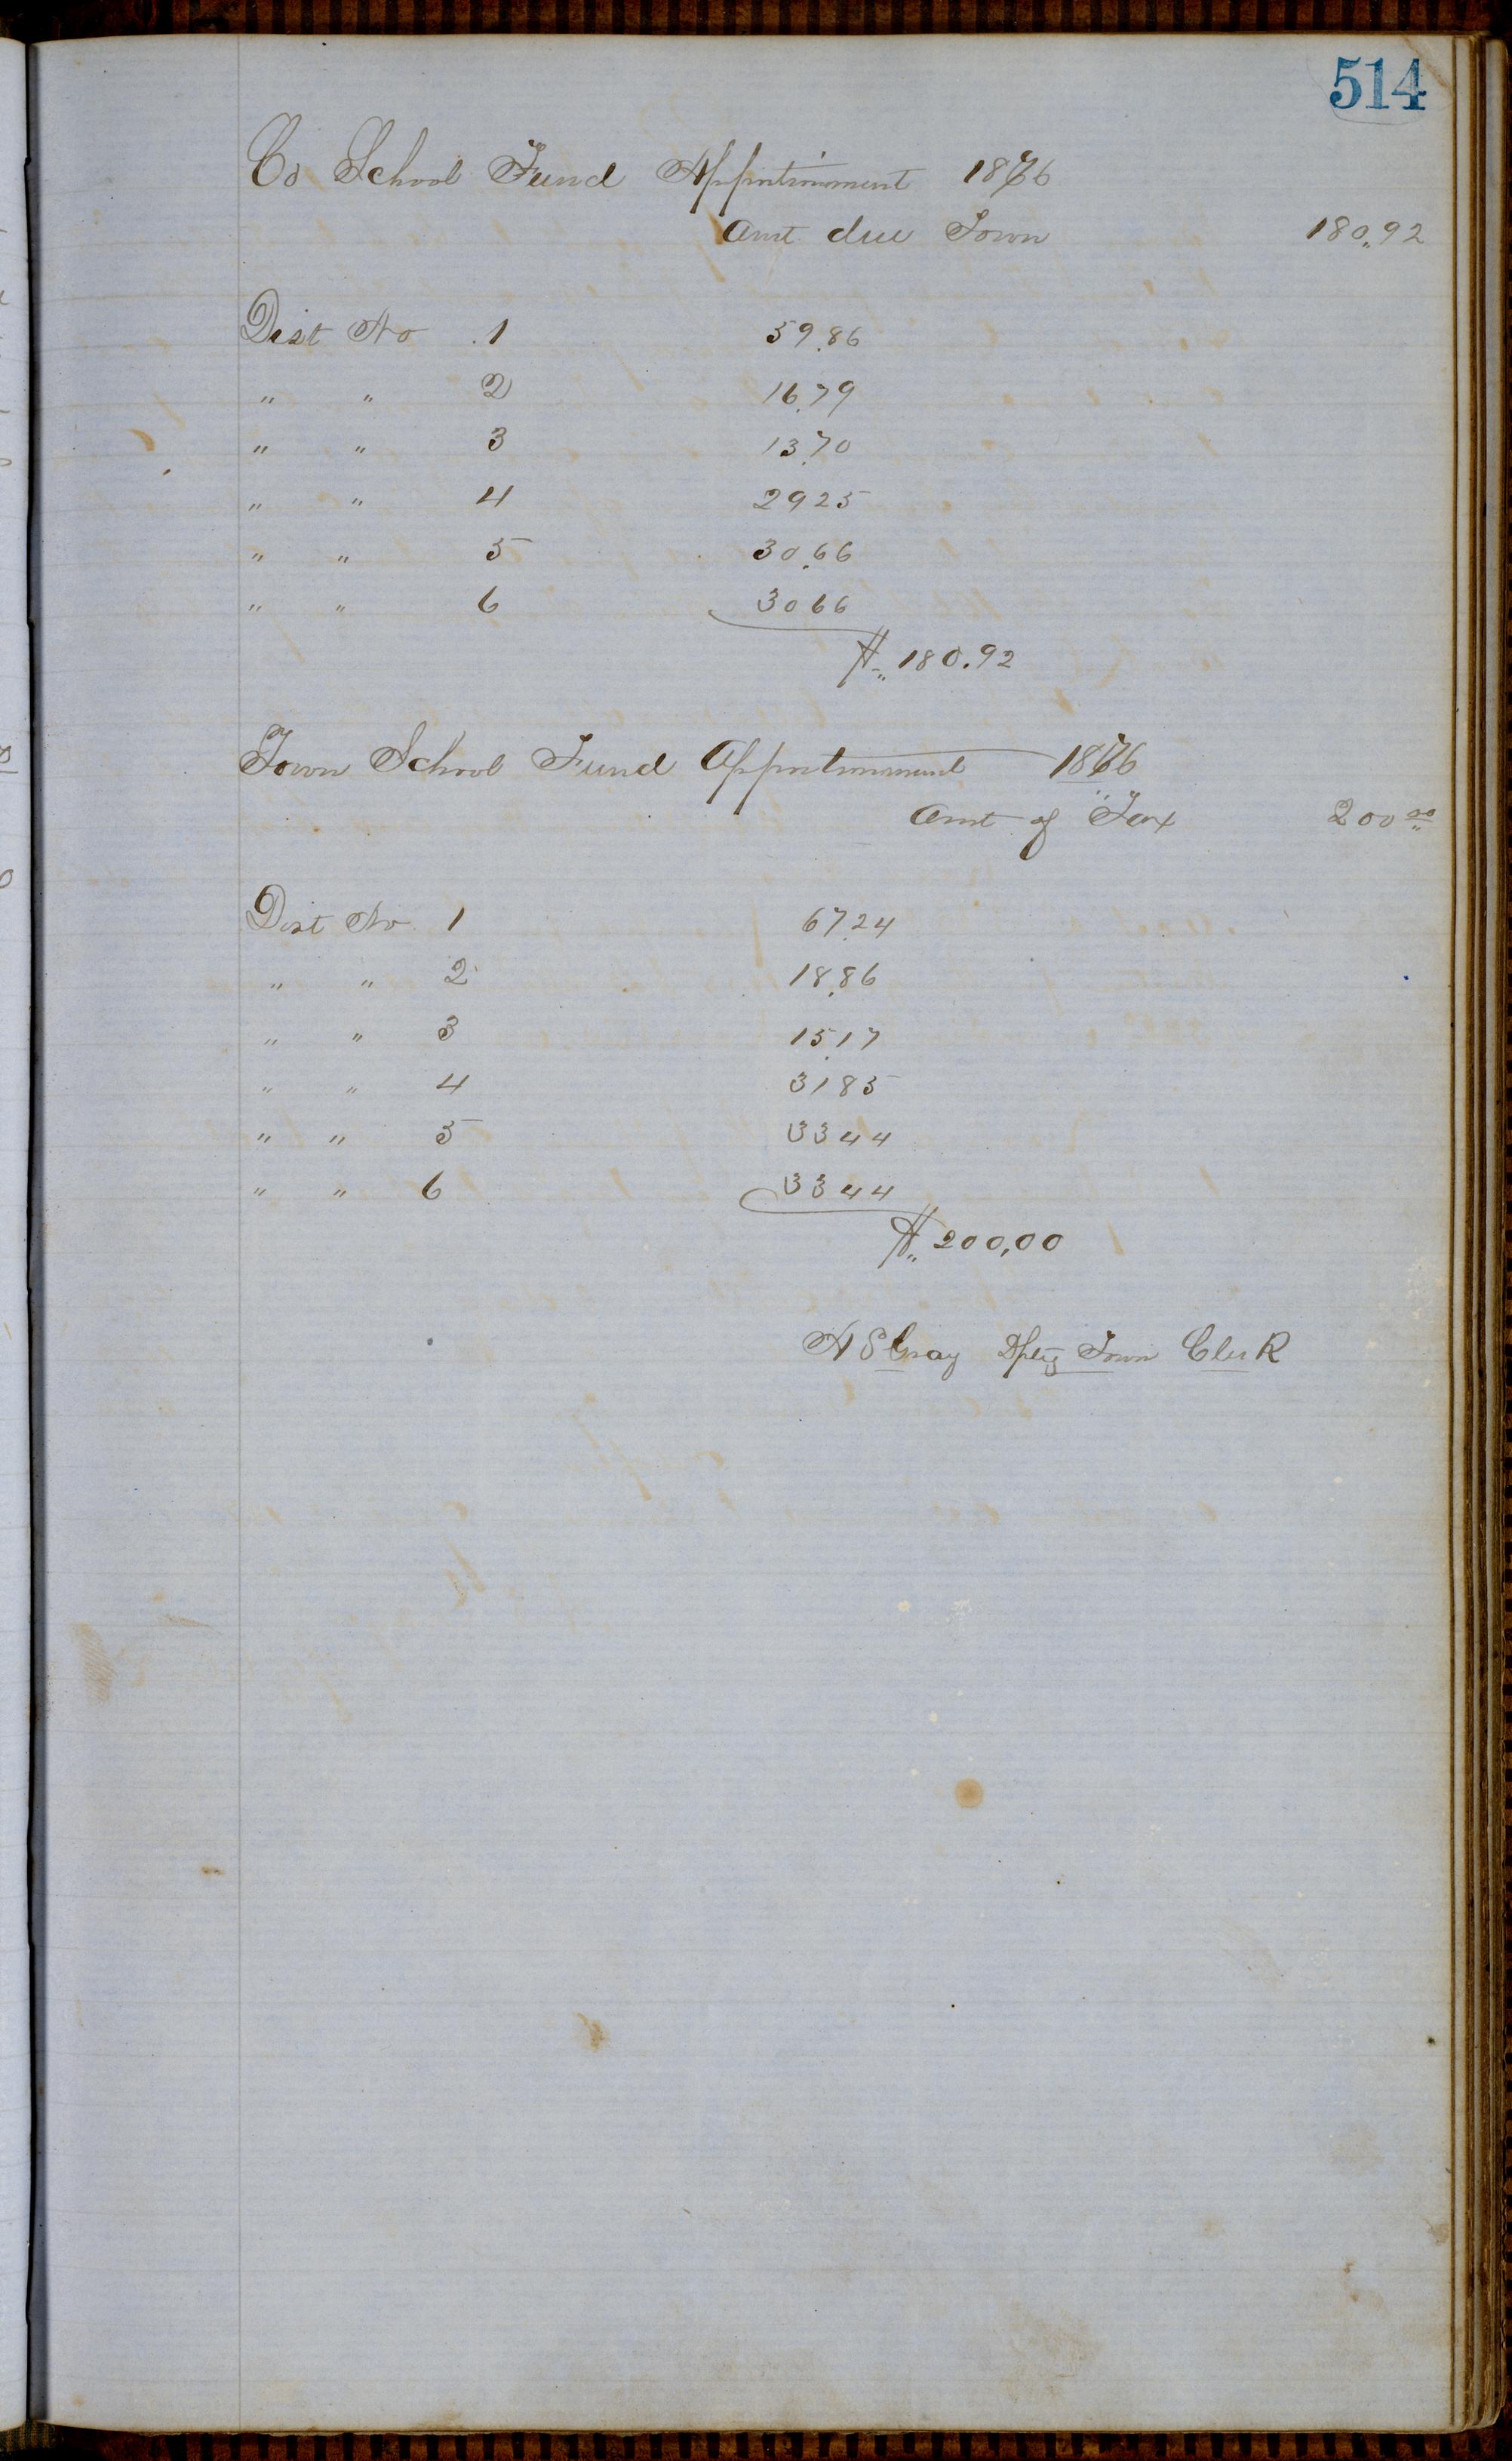 514
Co School Fund Apportionment 1876
Amt due Town 180.92
Dist No 1 59.86
" " 2 16.79
" " 3 13.70
" " 4 2925
" " 5 30.66
" " 6 3066
$ 180.92
Town School Fund Apportionment 1876
Amt of Tax 200 00
Dist No 1 67.24
" " 2 18.86
" " 3 15.17
" " 4 3185
" " 5 3344
" " 6 3344
$ 200,00
A S Gray Dpty Town Clerk